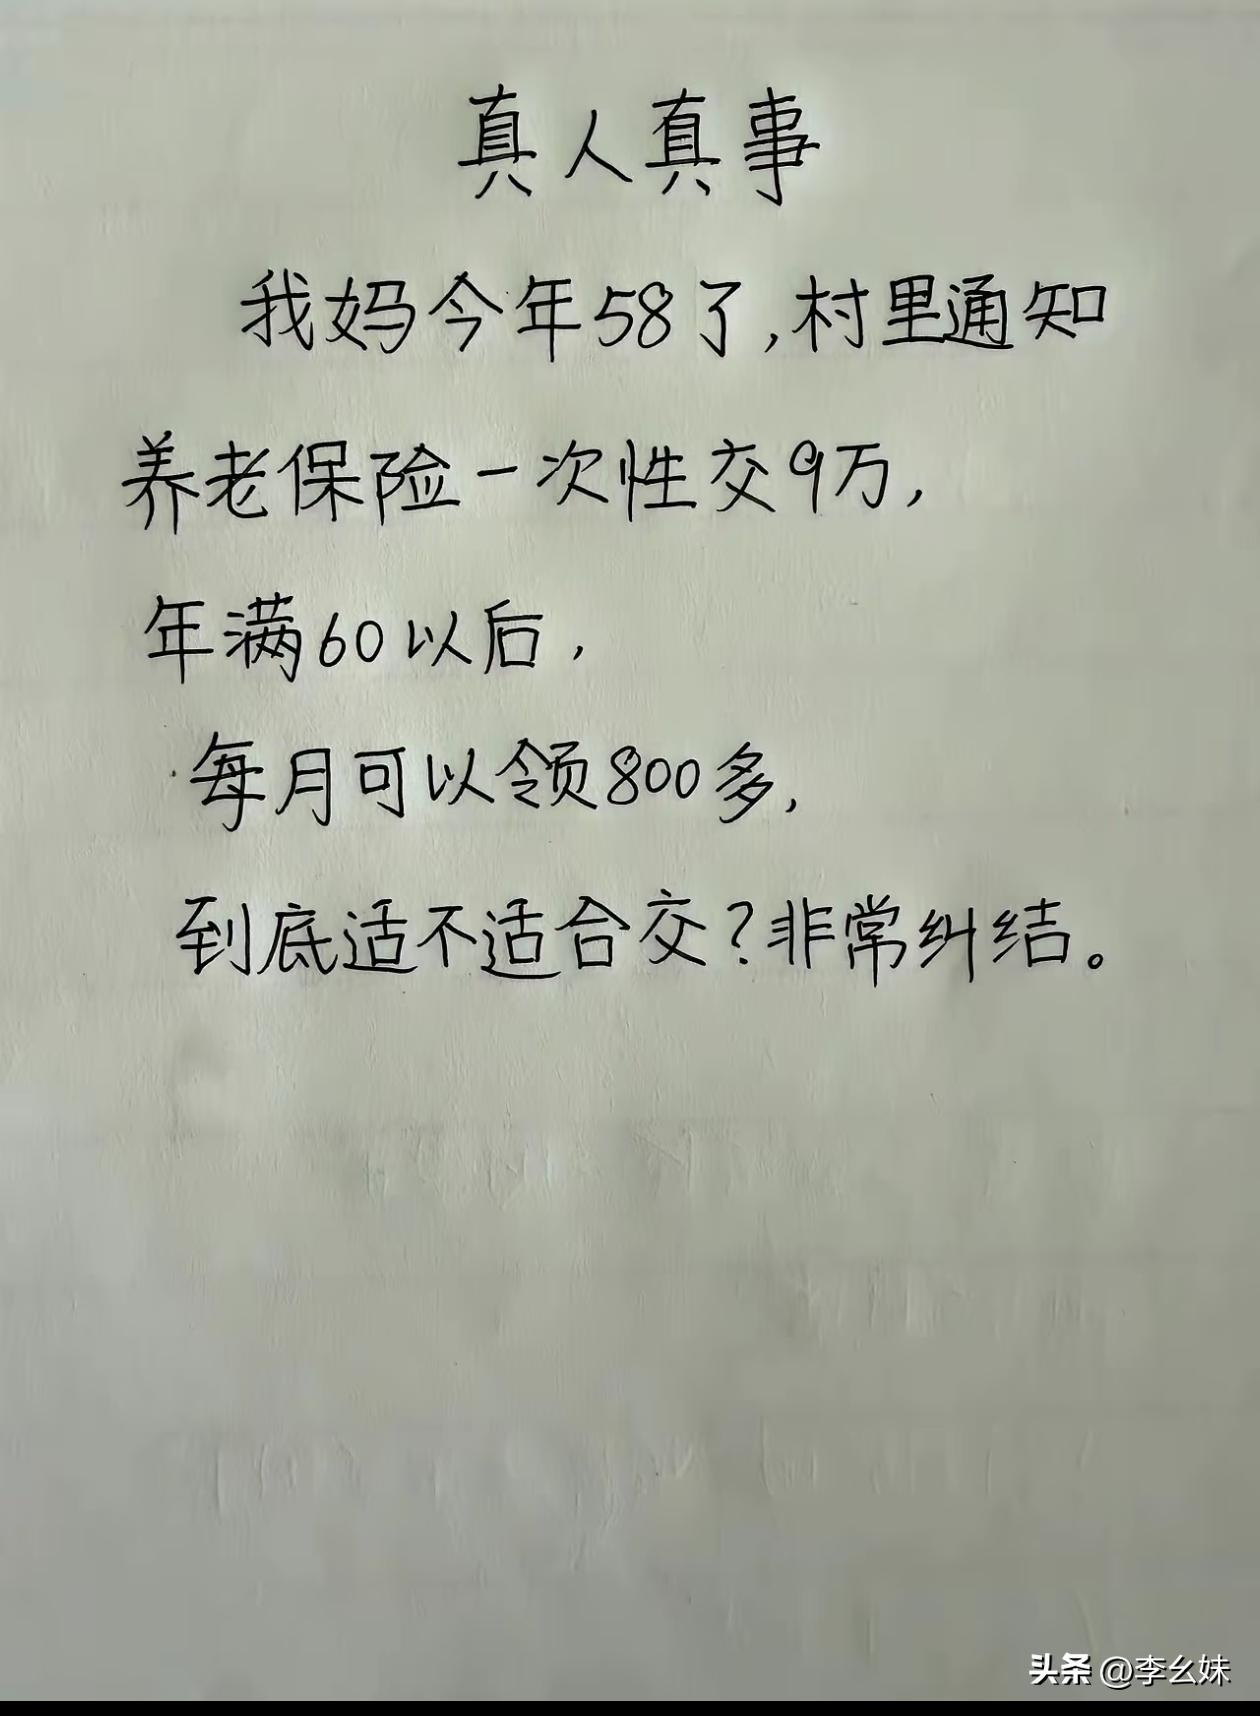 真人真事
我妈今年58了,村里通知
养老保险一次性交9万,
年满60以后,
每月可以领800多,
到底适不适合交?非常纠结。
头条 @李幺妹